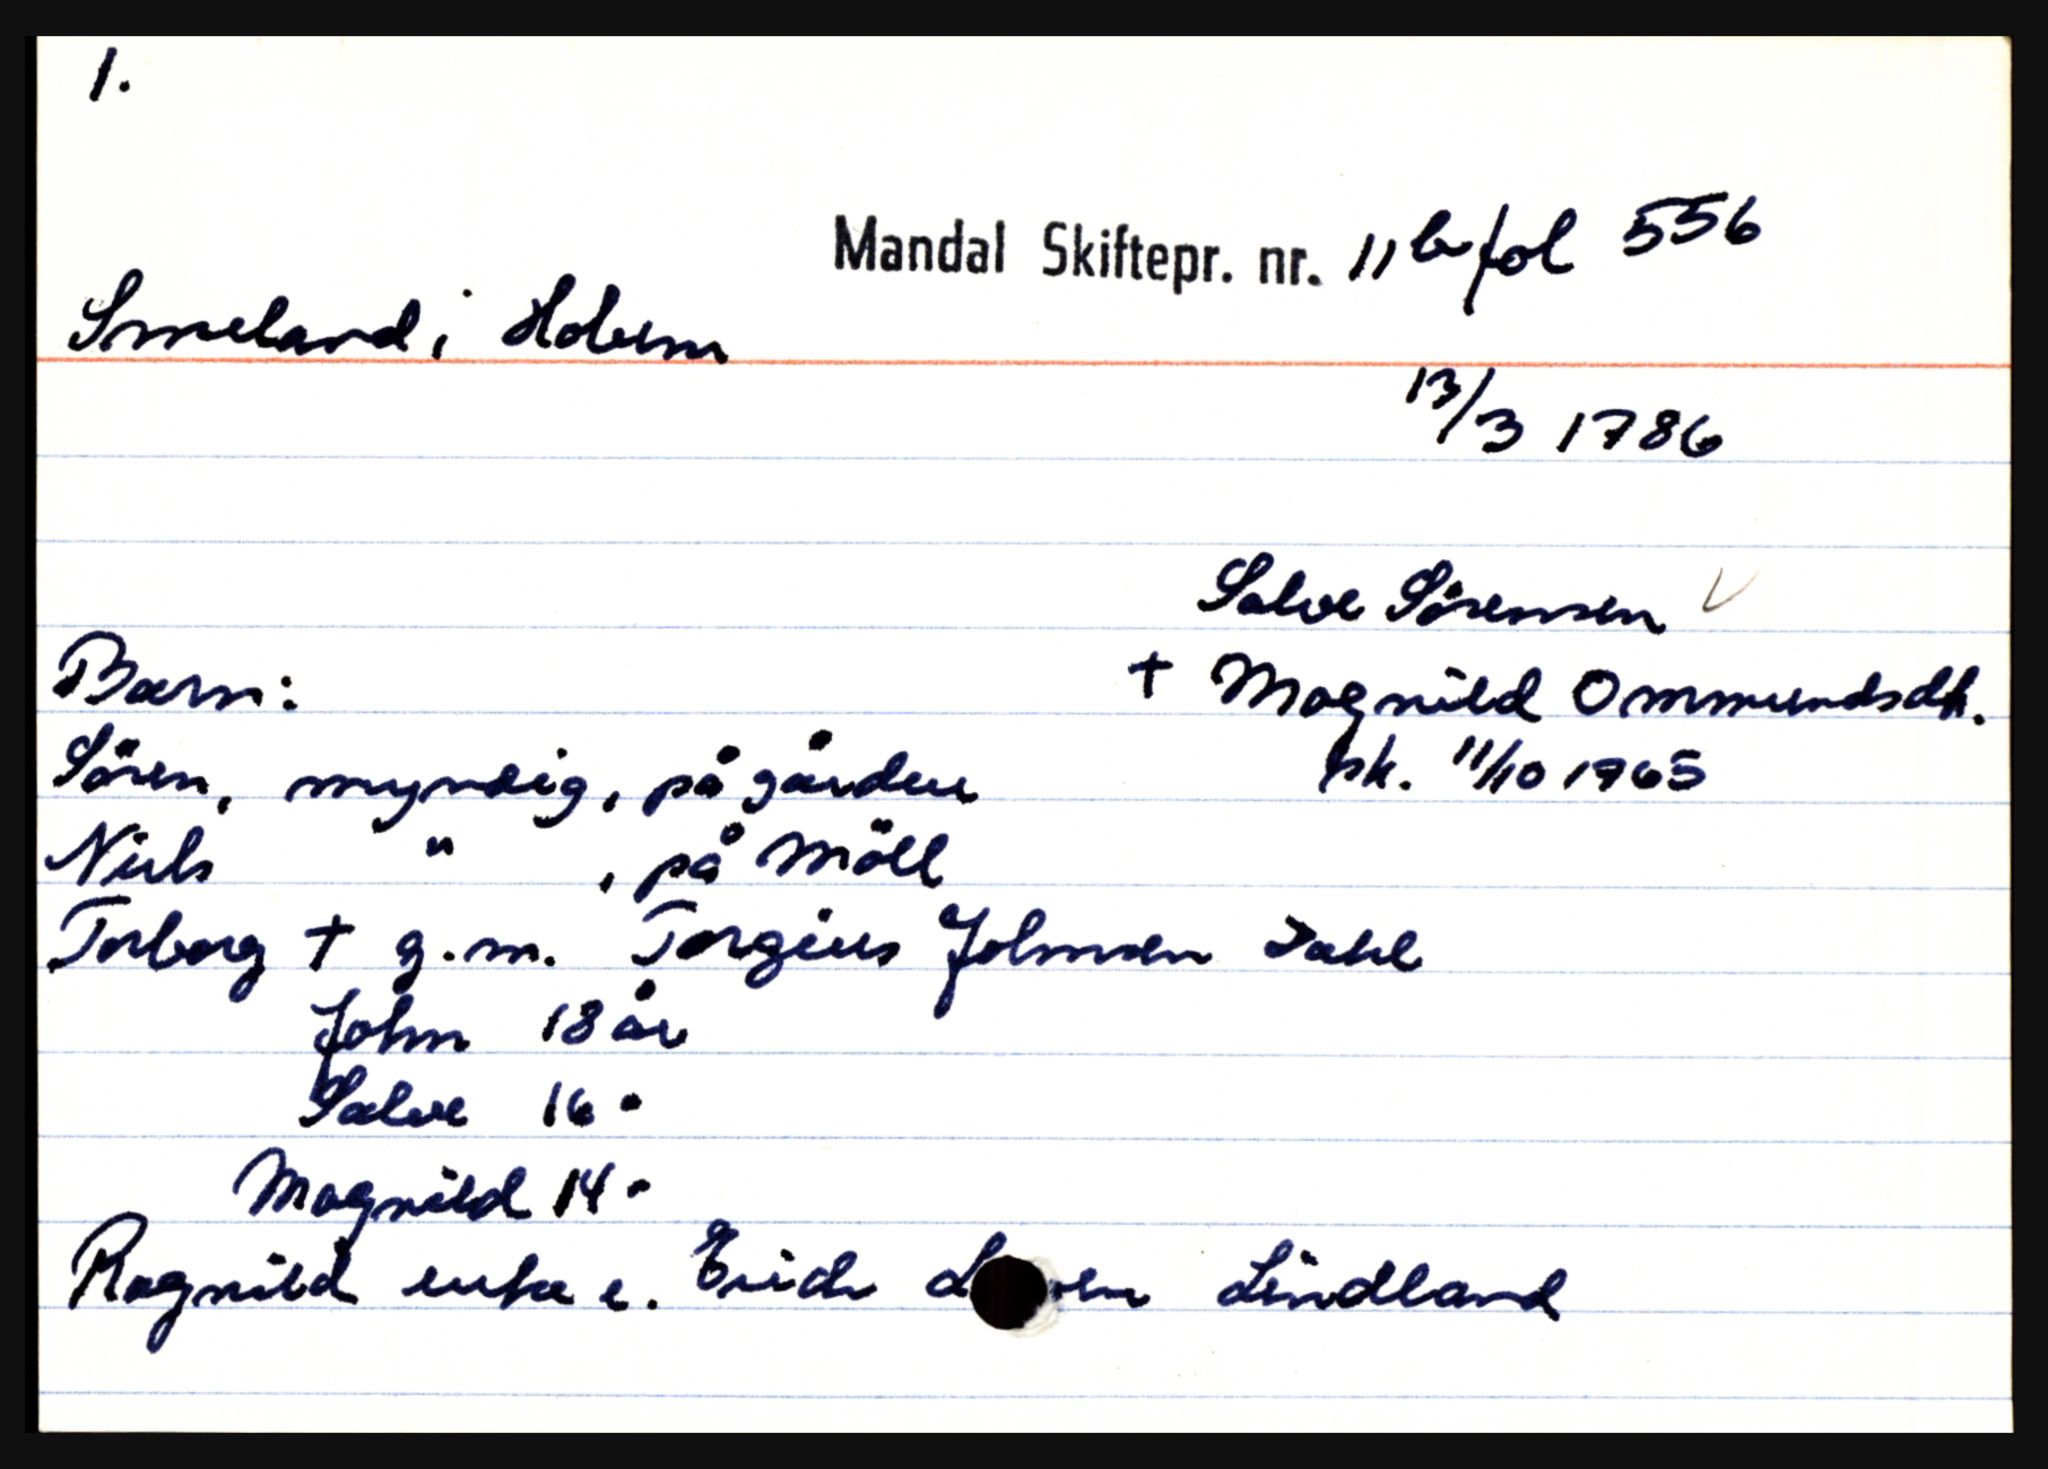 1.
Mandal Skiftepr. nr. 11 b fol 556
Smeland i Holum
13/3 1786
Salve Sørensen
Barn:
† Magnild Ommundsdt.
Sören, myndig, på gården
sk. 11/10 1765
Niels " , på Möll
Torborg † g.m. Torgius Johnsen Dahl
John 18 år
Salve 16 "
Magnild 14 "
Ragnild enke e. Erich Lindland